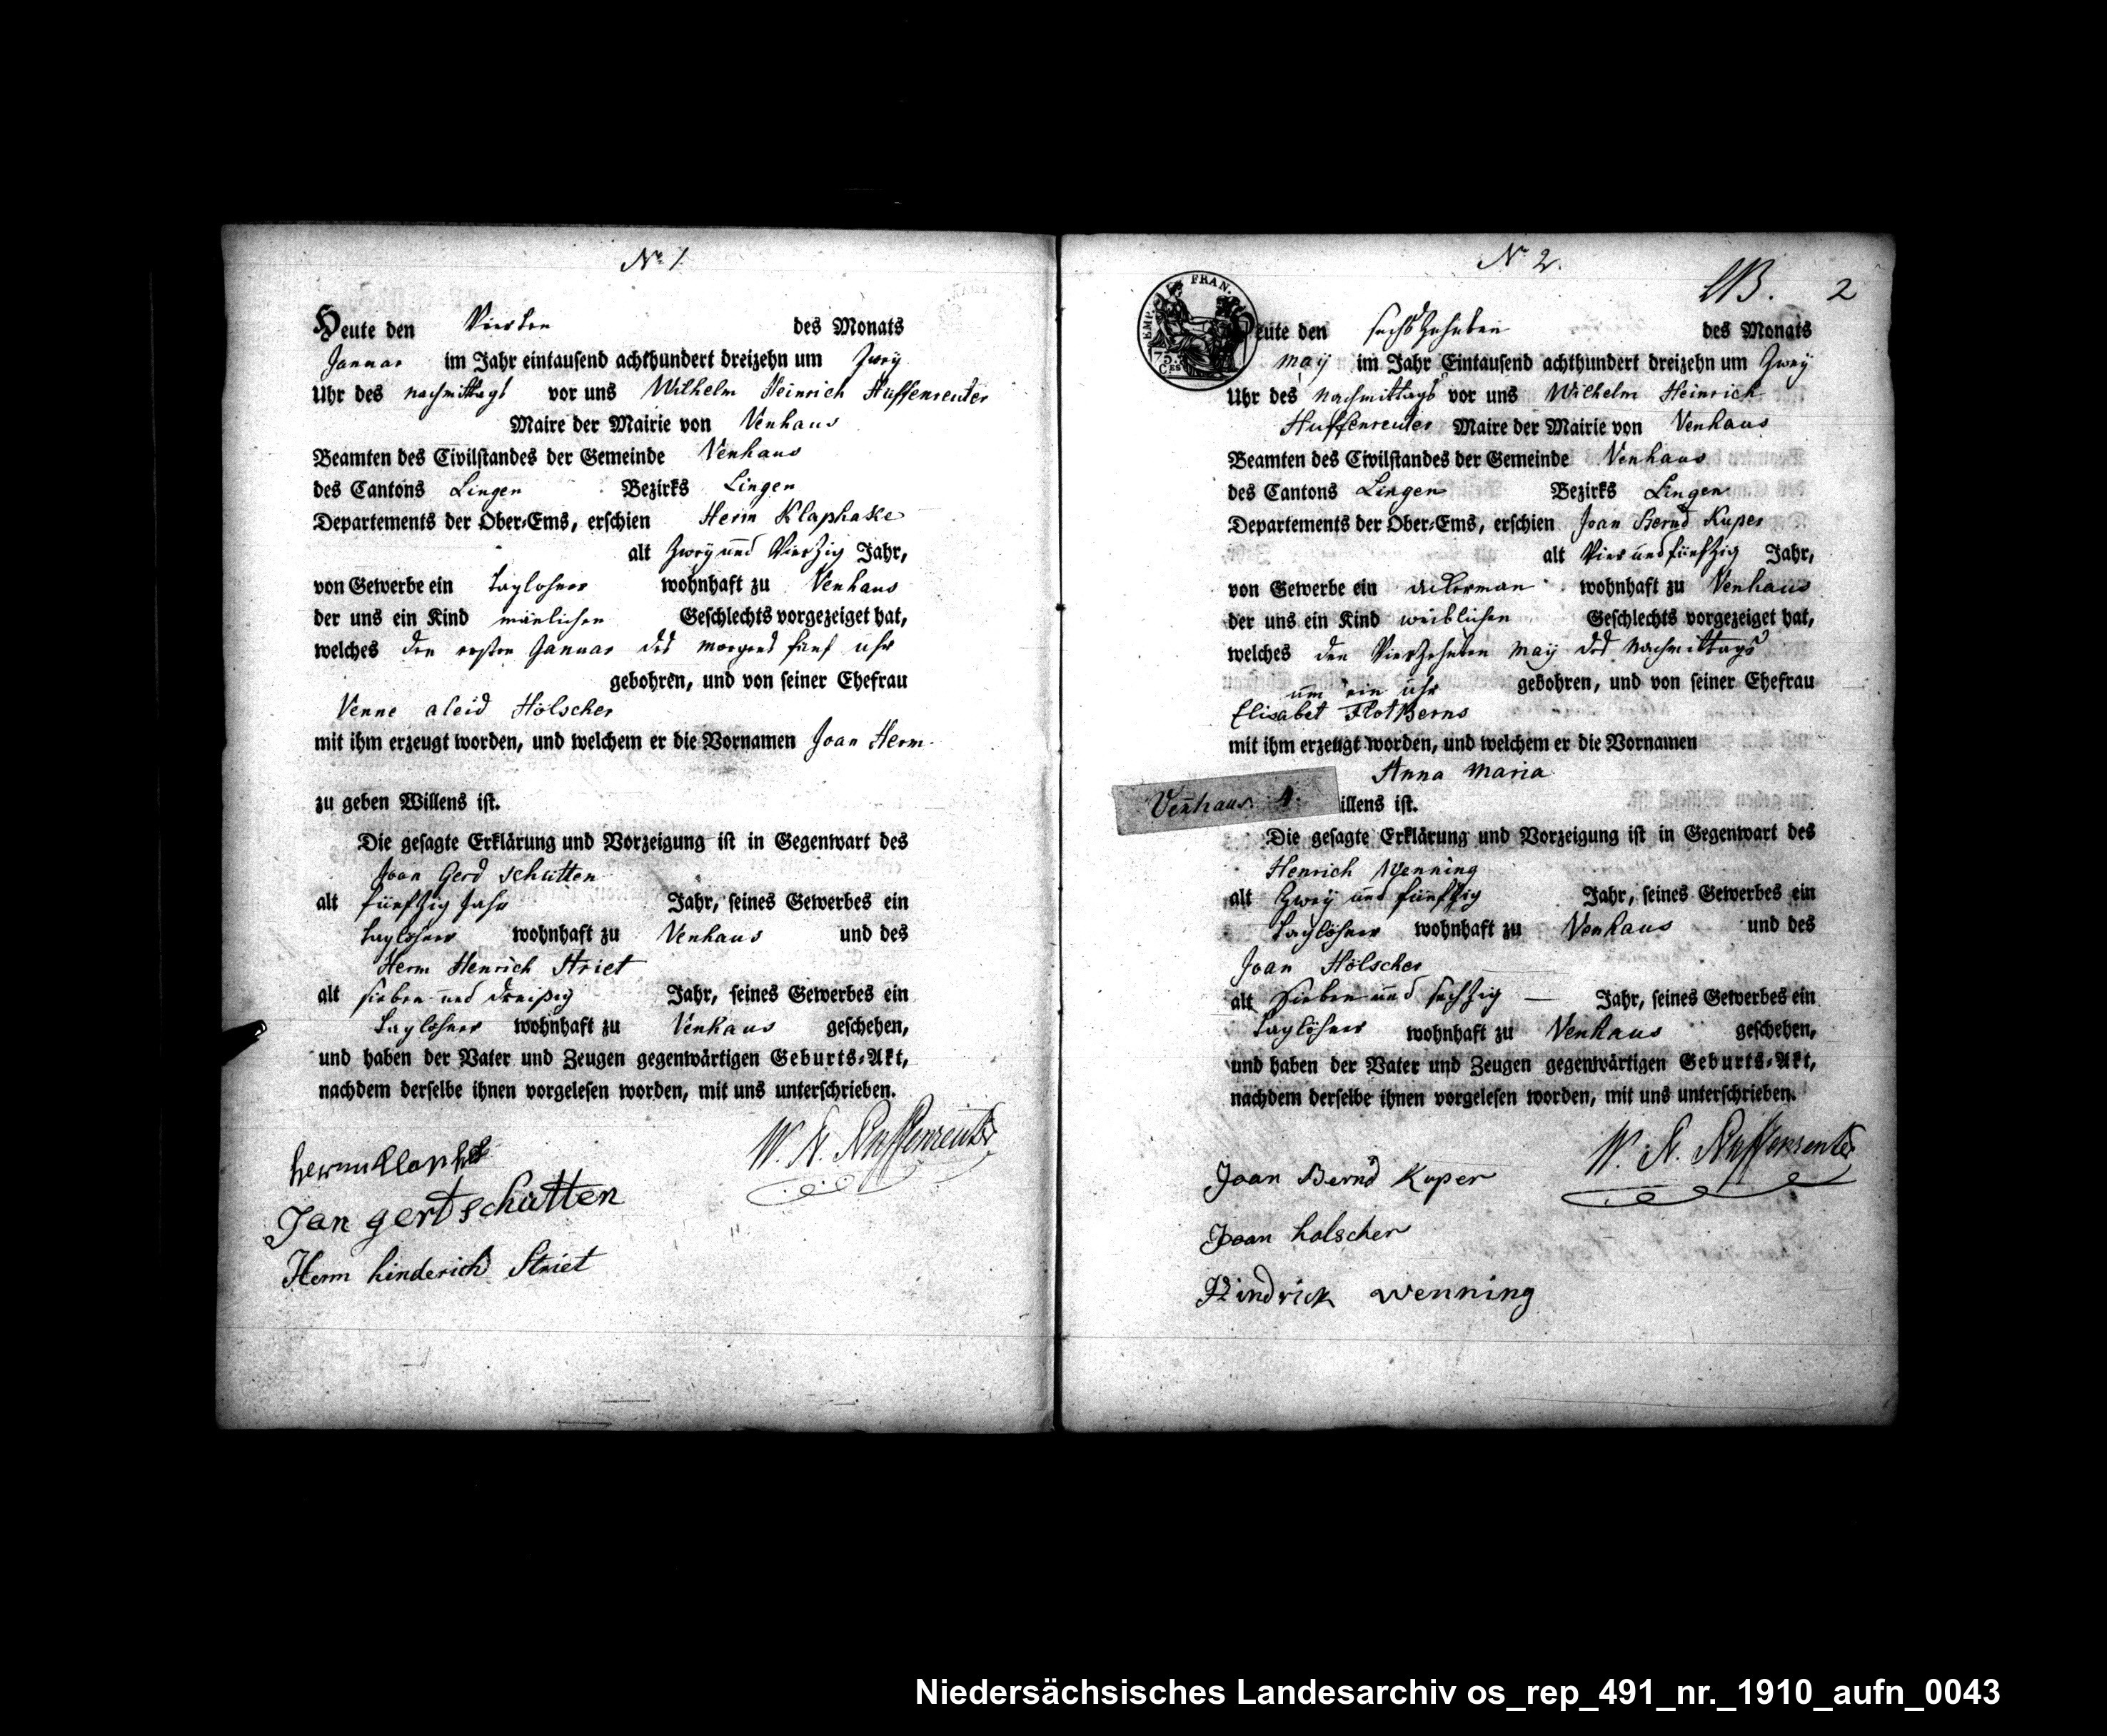 No 1
Heute den Vierten des Monats
Januar im Jahr eintausend achthundert dreizehn um Zwey
Uhr des nachmittags vor uns Wilhelm Heinrich Huffenreuter
Maire der Mairie von Venhaus
Beamten des Civilstandes der Gemeinde Venhaus
des Cantons Lingen Bezirks Lingen
Departements der Ober-Ems, erschien Herm Klaphake
alt Zwey und Vierzig Jahr,
von Gewerbe ein Taglohner wohnhaft zu Venhaus
der uns ein Kind mänlichen Geschlechts vorgezeiget hat,
welches den ersten Januar des morgens fünf uhr
gebohren, und von seiner Ehefrau
Venne aleid Hölscher
mit ihm erzeugt worden, und welchem er die Vornamen Joan Herm
zu geben Willens ist.
Die gesagte Erklärung und Vorzeigung ist in Gegenwart des
Joan Gerd Schütten
alt fünfzig Jahr Jahr, seines Gewerbes ein
Taglöhner wohnhaft zu Venhaus und des
Herm Henrich Striet
alt sieben und dreißig Jahr, seines Gewerbes ein
Taglöhner wohnhaft zu Venhaus geschehen,
und haben der Vater und Zeugen gegenwärtigen Geburts-Akt,
nachdem derselbe ihnen vorgelesen worden, mit uns unterschrieben.
W. H. Huffenreuter
herm
Jan gert schütten
Herm hinderich Striet
No 2.
2
EMP. FRAN.
75.
CES
Heute den sechszehnten des Monats
may im Jahr Eintausend achthundert dreizehn um Zwey
Uhr des Nachmittags vor uns Wilhelm Heinrich
Huffenreuter Maire der Mairie von Venhaus
Beamten des Civilstandes der Gemeinde Venhaus
des Cantons Lingen Bezirks Lingen
Departements der Ober-Ems, erschien Joan Bernd Kuper
alt Vier und fünfzig Jahr,
von Gewerbe ein ackerman wohnhaft zu Venhaus
der uns ein Kind weiblichen Geschlechts vorgezeiget hat,
welches den Vierzehnten May des Nachmittags
um ein uhr gebohren, und von seiner Ehefrau
Elisabet
mit ihm erzeugt worden, und welchem er die Vornamen
Anna Maria
Venhaus. 4. illens ist.
Die gesagte Erklärung und Vorzeigung ist in Gegenwart des
Henrich Wenning
alt Zwey und fünfzig Jahr, seines Gewerbes ein
Taglöhner wohnhaft zu Venhaus und des
Joan Hölscher
alt Sieben und sechzig — Jahr, seines Gewerbes ein
Taglöhner wohnhaft zu Venhaus geschehen,
und haben der Vater und Zeugen gegenwärtigen Geburts-Akt,
nachdem derselbe ihnen vorgelesen worden, mit uns unterschrieben.
W. H. Huffenreuter
Joan Bernd Kuper
Joan holscher
Hindrick wenning
Niedersächsisches Landesarchiv os_rep_491_nr._1910_aufn_0043